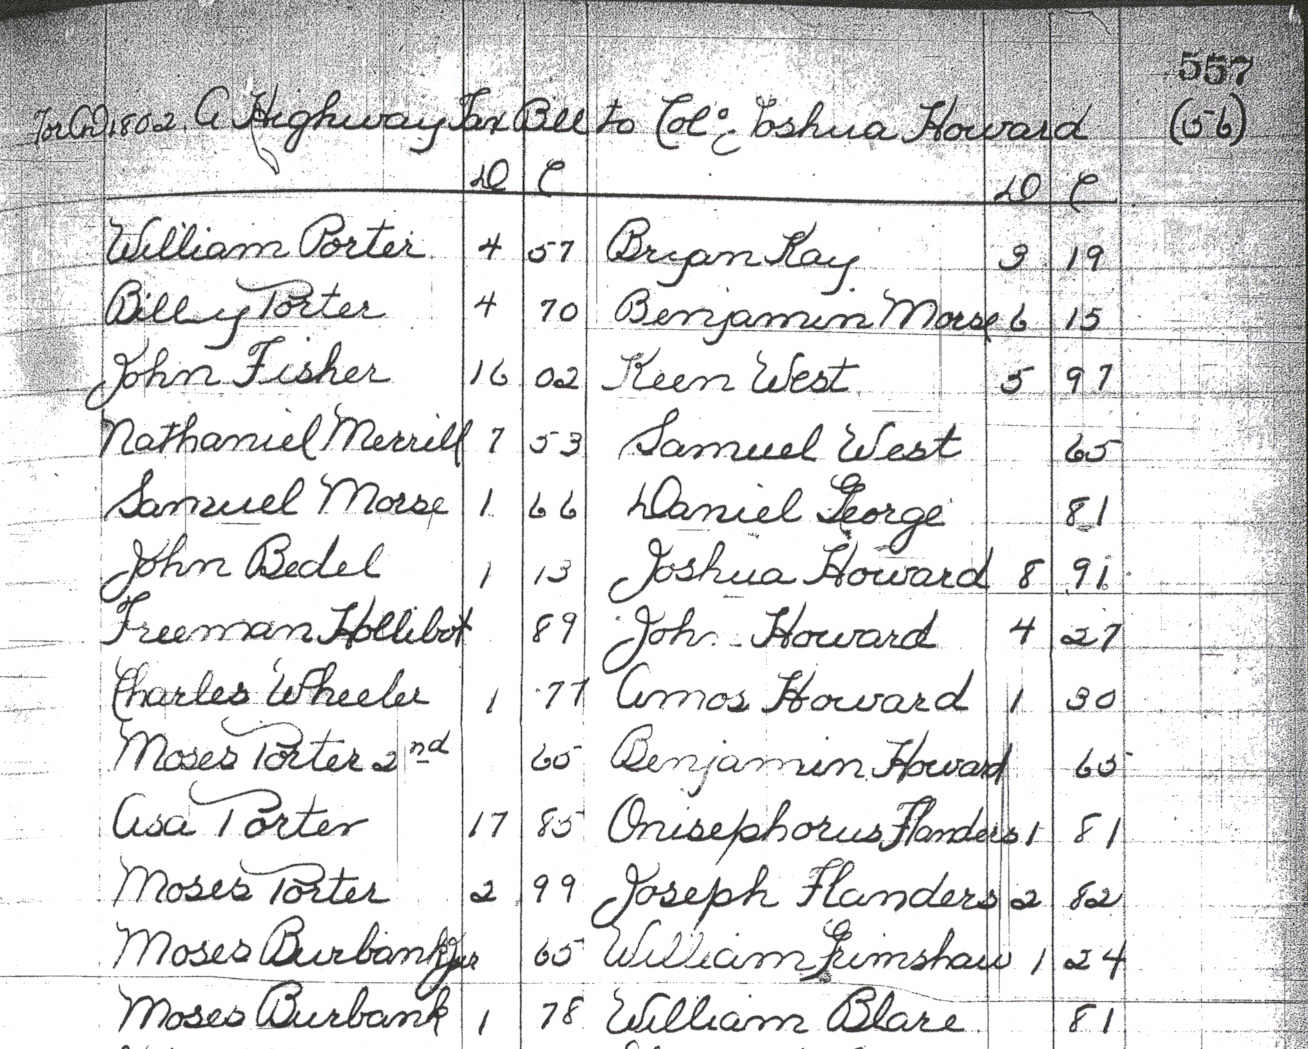 557
For Ano 1802. A Highway Tax Bill to Colo. Joshua Howard (56)
D C D C
William Porter 4 57 Bryan Kay 3 19
Billy Porter 4 70 Benjamin Morse 6 15
John Fisher 16 02 Keen West 5 97
Nathaniel Merrill 7 53 Samuel West 65
Samuel Morse 1 66 Daniel George 81
John Bedel 1 13 Joshua Howard 8 91
Freeman Hollibot 89 John Howard 4 27
Charles Wheeler 1 77 Amos Howard 1 30
Moses Porter 2nd 65 Benjamin Howard 65
Asa Porter 17 85 Onisephorus Flanders 1 81
Moses Porter 2 99 Joseph Flanders 2 82
Moses Burbank Jur 65 William Grimshaw 1 24
Moses Burbank 1 78 William Blare 81